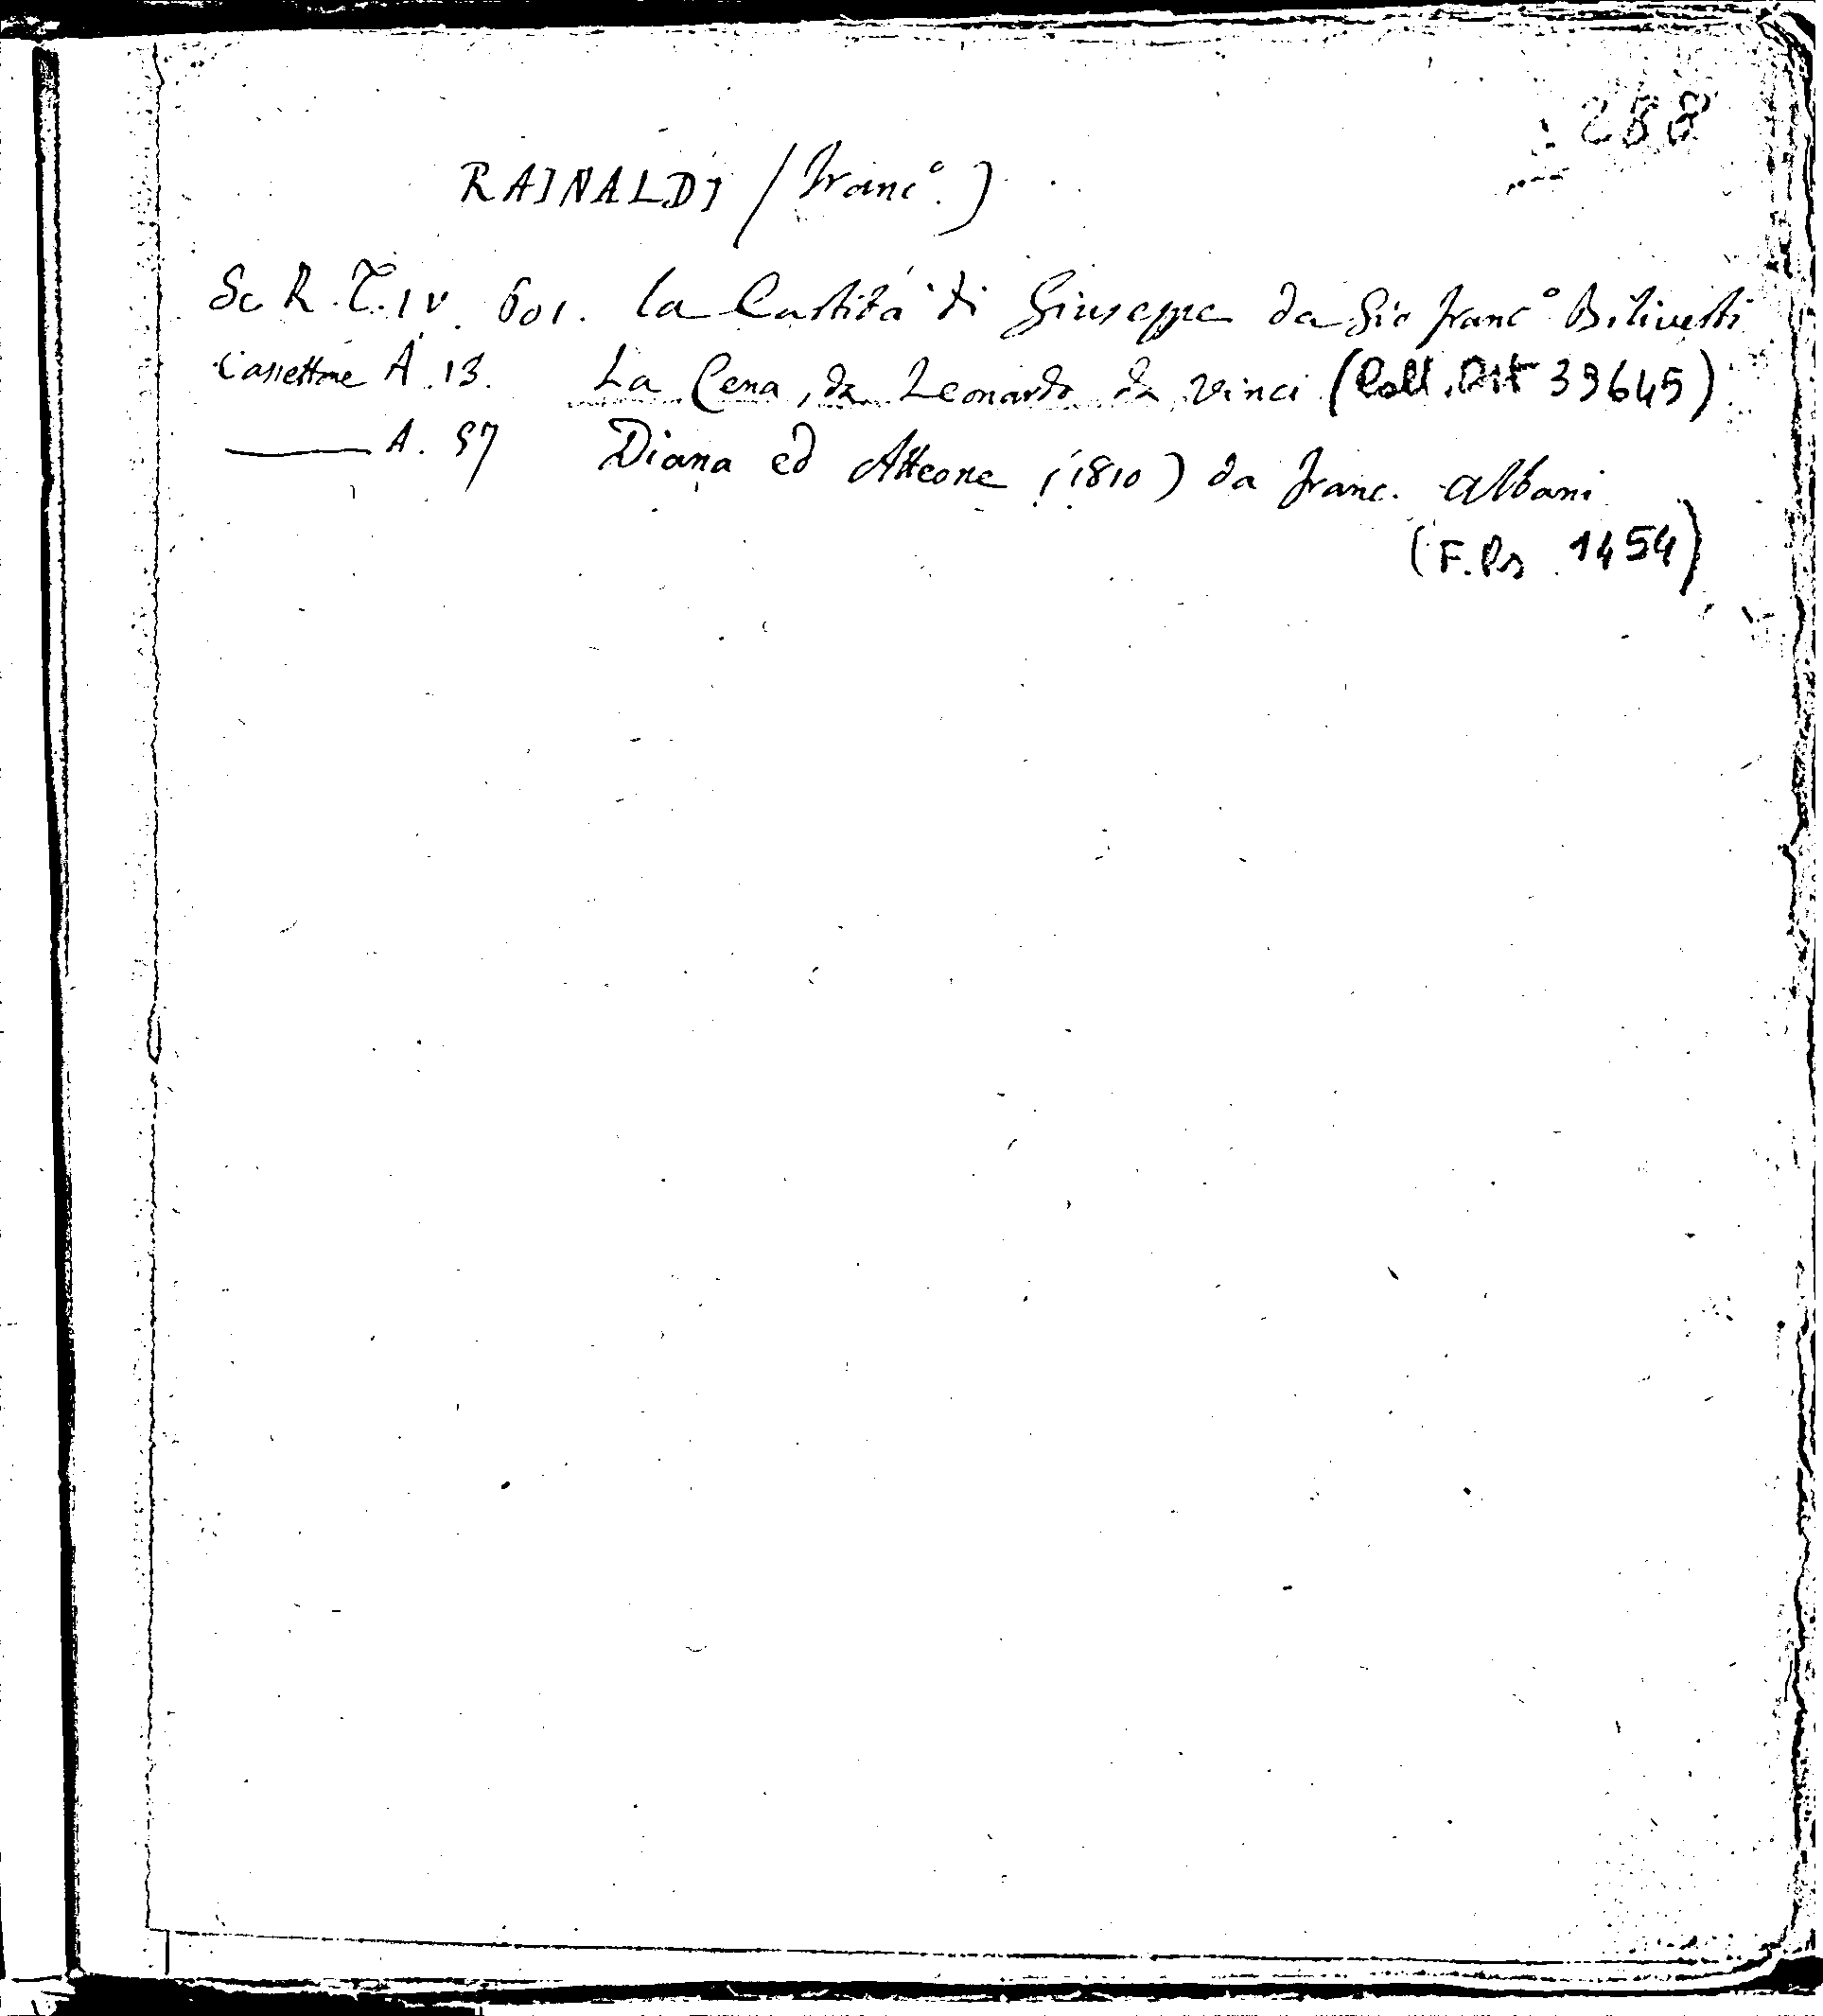 288
RAINALDI (Franc°.)
Sc R. T. IV. 601. la Castità di Giuseppe da Gio Franc° Biliverti
Cassettone A. 13. La Cena, da Leonardo da Vinci (Coll. Ost 39645)
——— A. 57 Diana ed Atteone (1810) da Franc. Albani
(F.Ps. 1454)